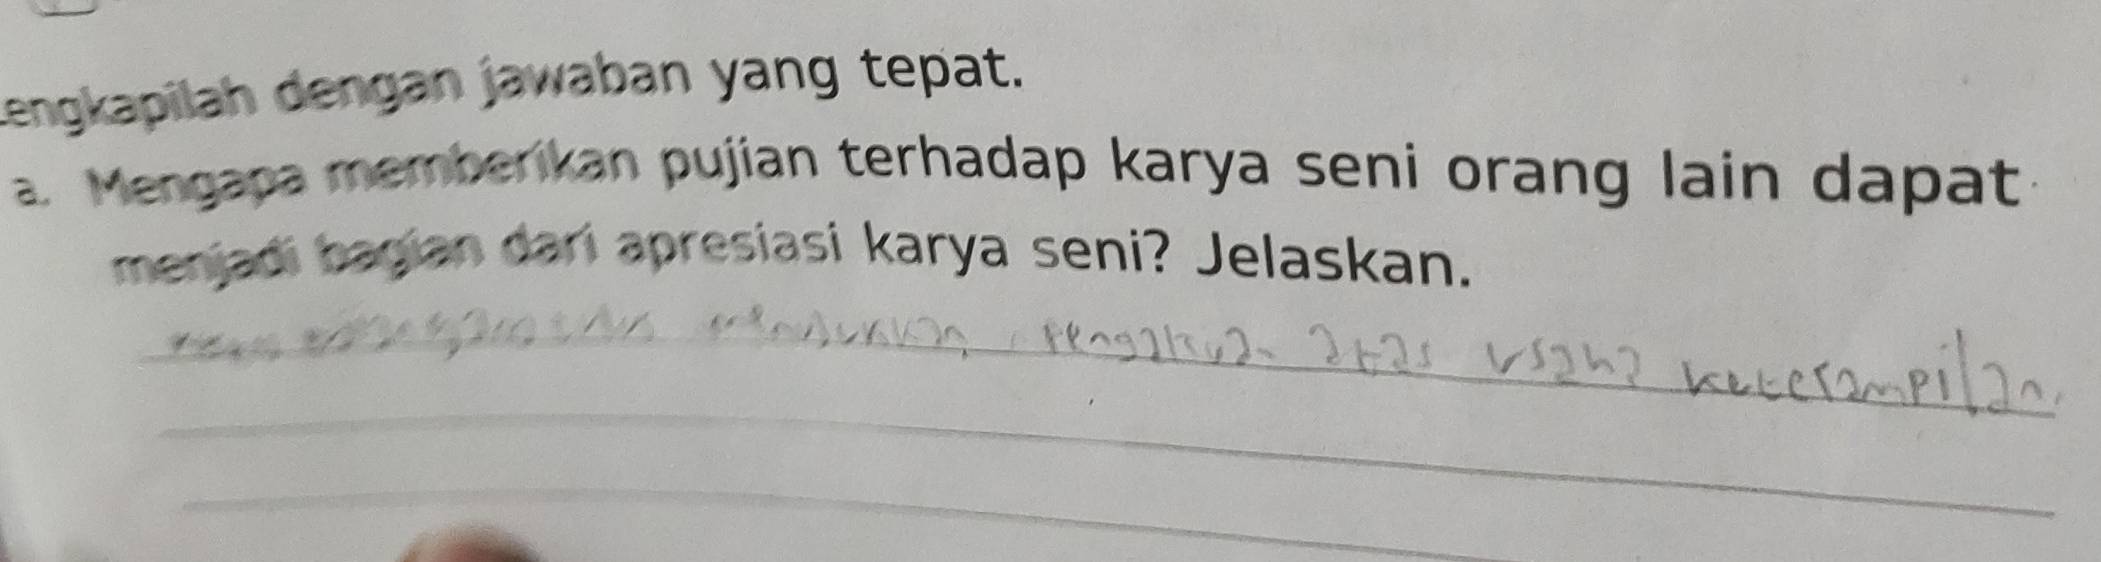 Lengkapilah dengan jawaban yang tepat.
a. Mengapa memberikan pujian terhadap karya seni orang lain dapat
menjadi bagian dari apresiasi karya seni? Jelaskan.
menunjukkan pengakuan atas usaha keterampilan.